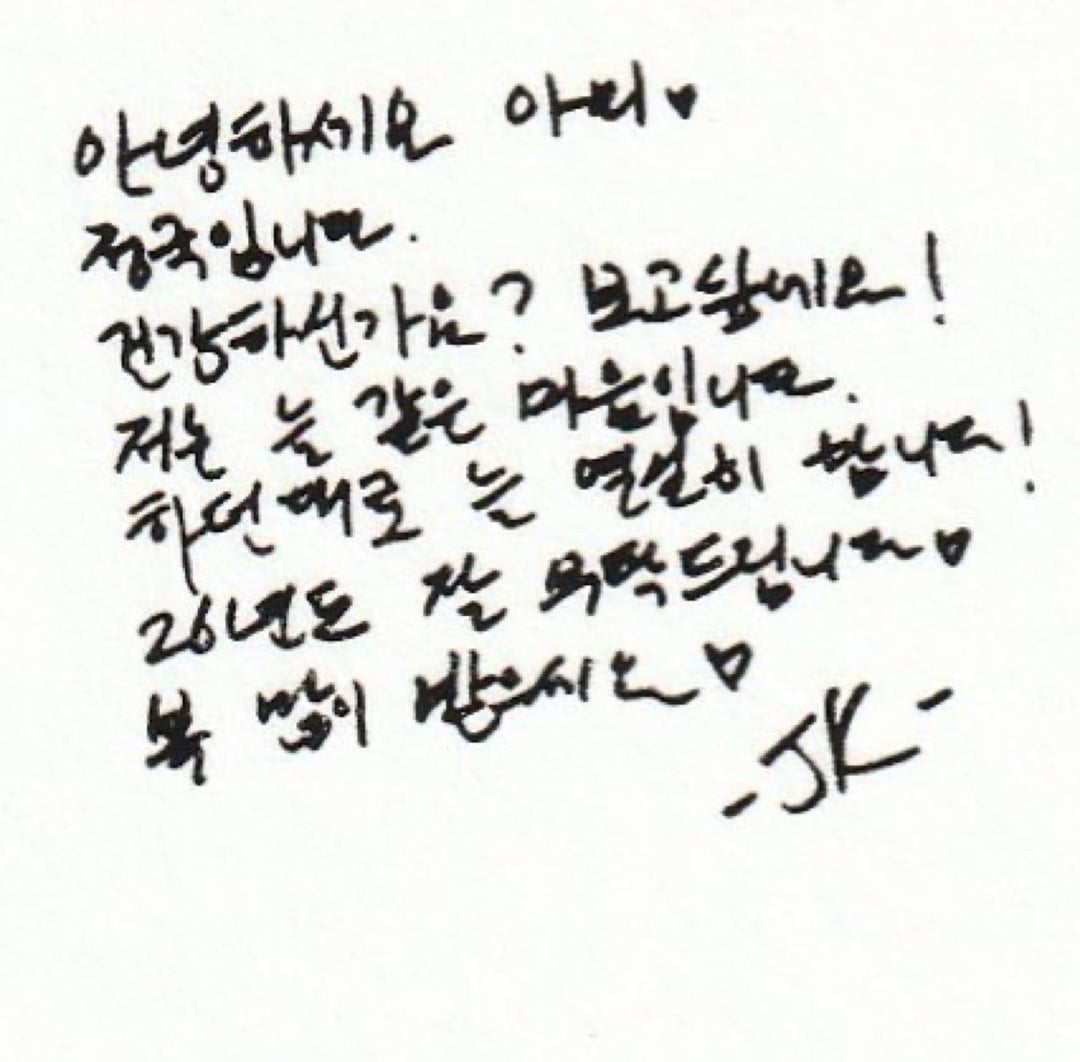 안녕하세요 아미♥
정국입니다.
건강하신가요? 보고싶네요!
저는 늘 같은 마음입니다.
하던대로 늘 열심히 합니다!
26년도 잘 부탁드립니다♡
복 많이 받으시오♡
-JK-